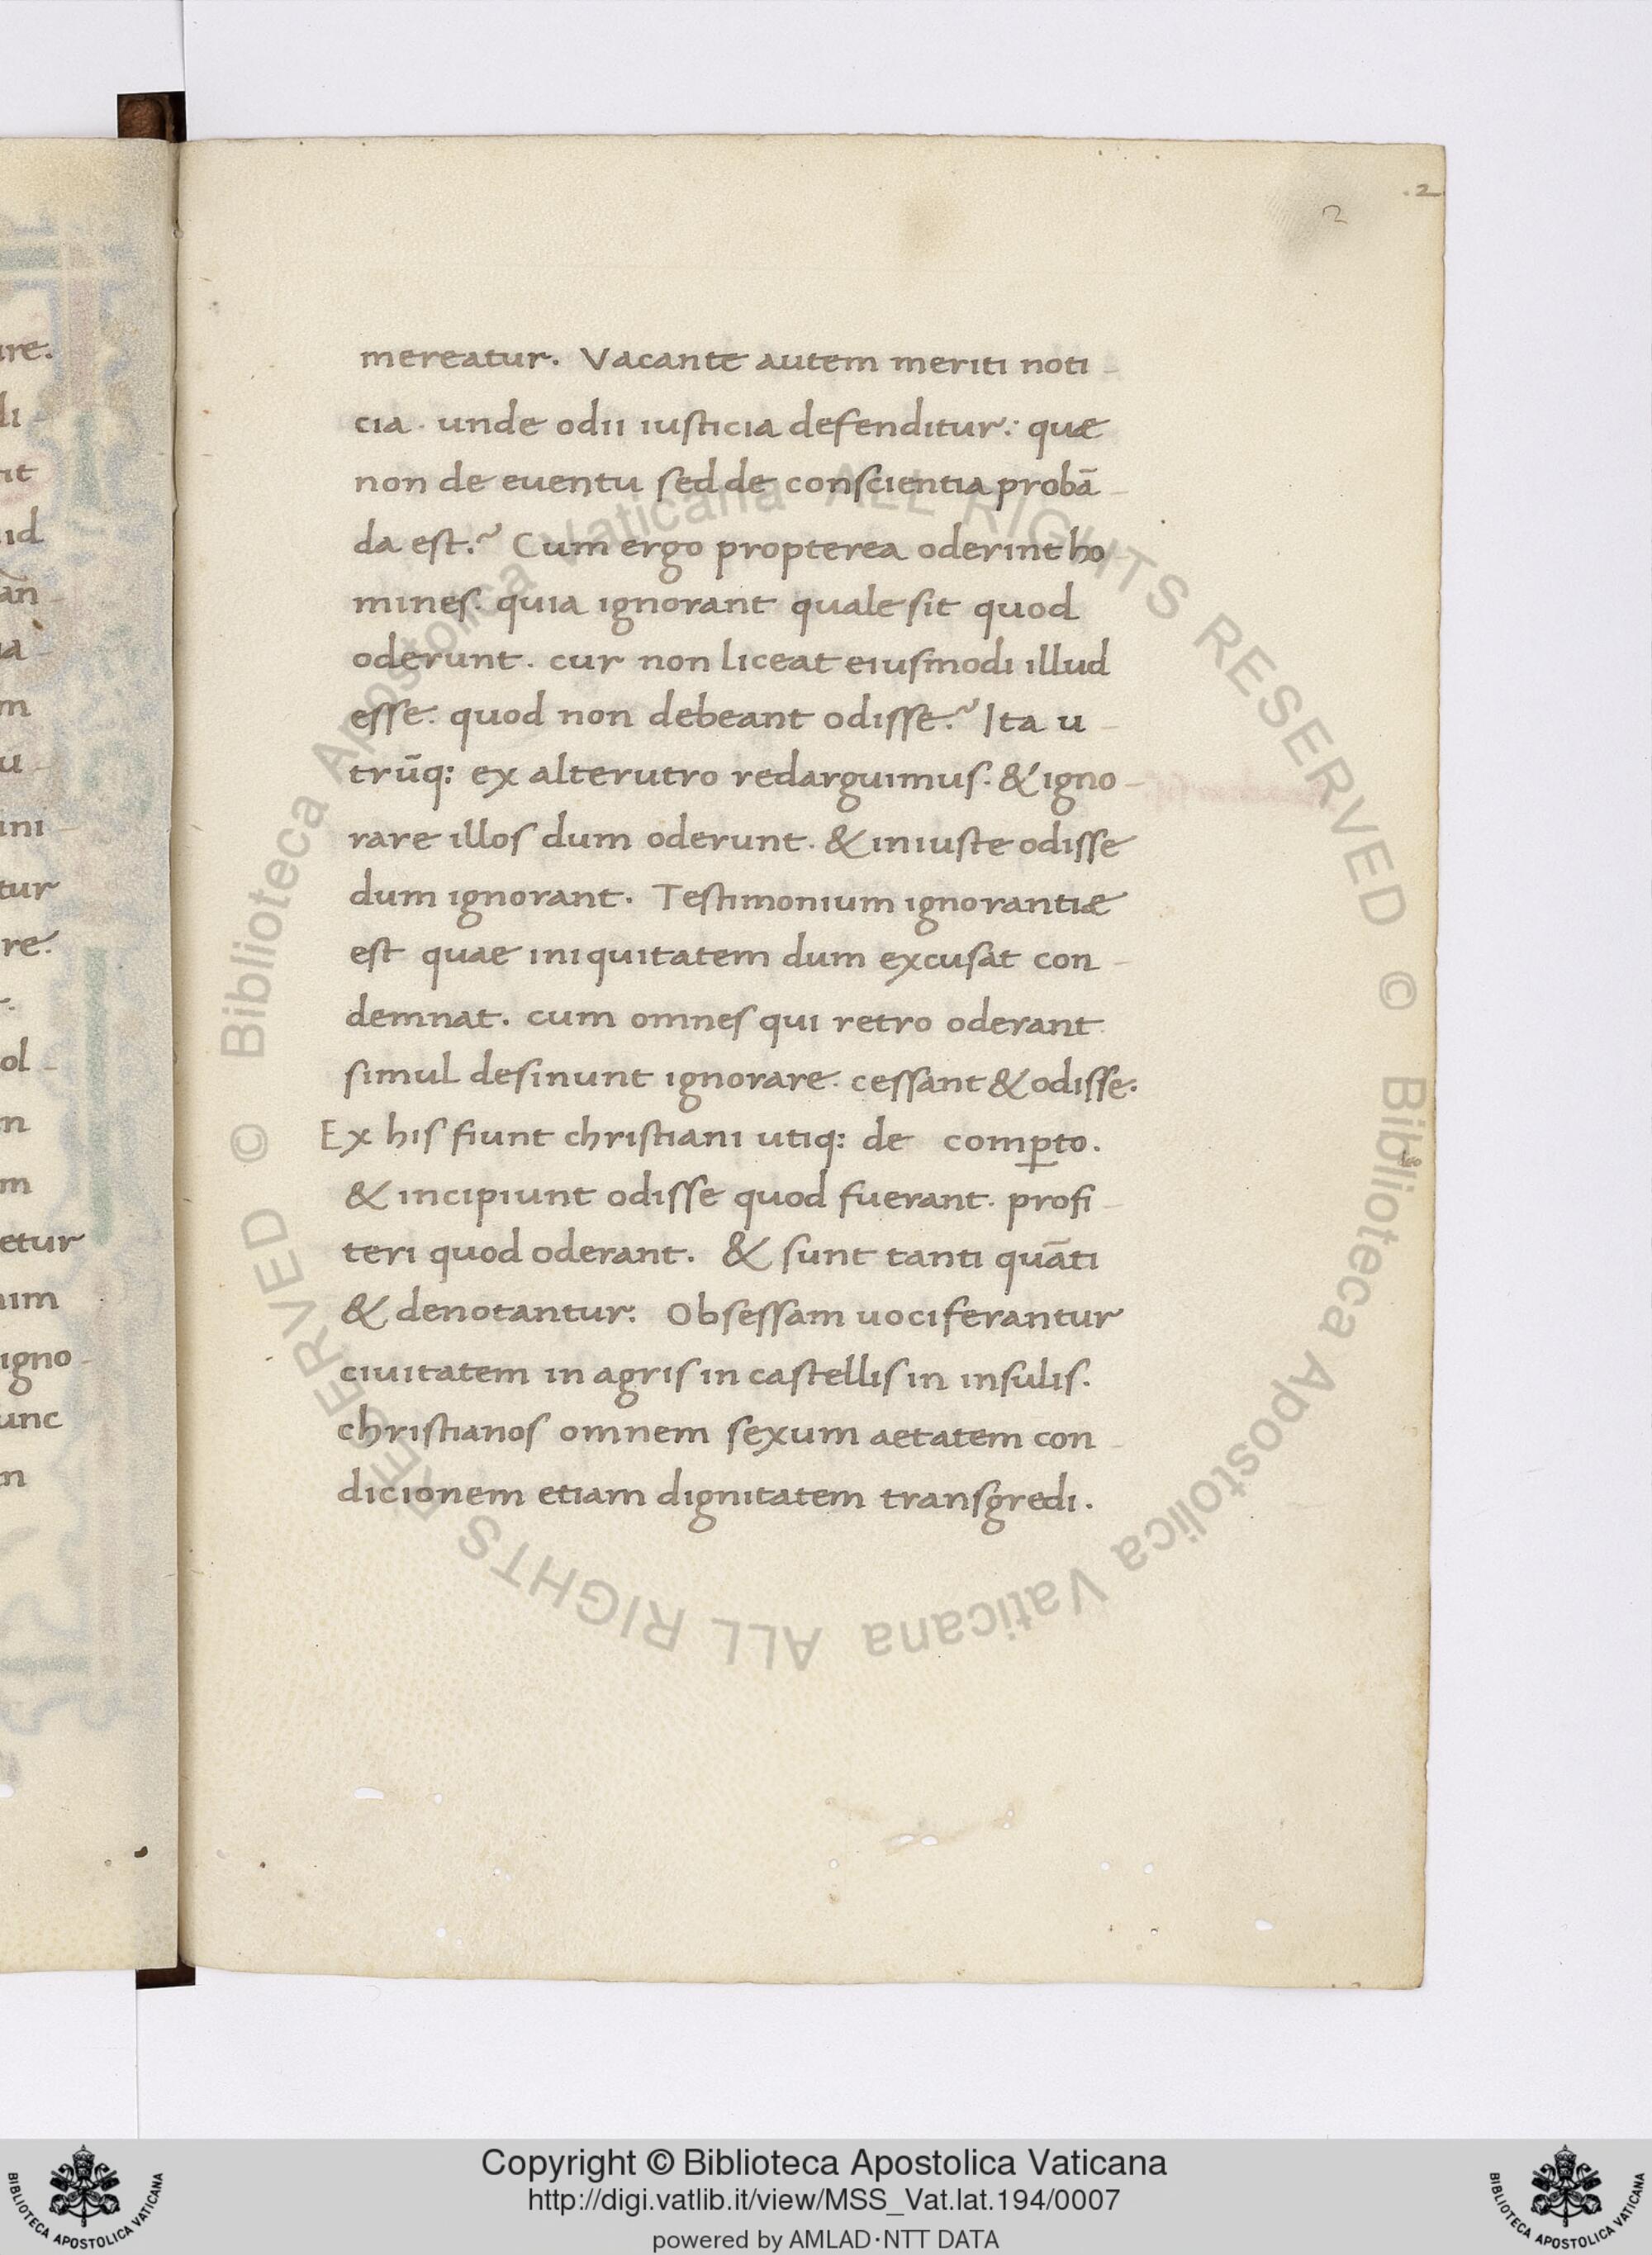 .2
2
mereatur. Vacante autem meriti noti-
cia. unde odii iusticia defenditur: quae
non de euentu sed de conscientia probā-
da est? Cum ergo propterea oderint ho
mines. quia ignorant quale sit quod
oderunt. cur non liceat eiusmodi illud
esse. quod non debeant odisse? Ita u-
trūq: ex alterutro redarguimus. & igno-
rare illos dum oderunt. & iniuste odisse
dum ignorant. Testimonium ignorantiae
est quae iniquitatem dum excusat con-
demnat. cum omnes qui retro oderant
simul desinunt ignorare. cessant & odisse.
Ex his fiunt christiani utiq: de comꝑto.
& incipiunt odisse quod fuerant. profi-
teri quod oderant. & sunt tanti quāti
& denotantur: Obsessam uociferantur
ciuitatem in agris in castellis in insulis.
christianos omnem sexum aetatem con-
dicionem etiam dignitatem transgredi.
ure.
li-
it
id
an-
a-
m
u-
ni-
tur
re.
ol-
n
m
etur
nim
igno-
unc
n
© Biblioteca Apostolica Vaticana ALL RIGHTS RESERVED
© Biblioteca Apostolica Vaticana ALL RIGHTS RESERVED
Copyright © Biblioteca Apostolica Vaticana
http://digi.vatlib.it/view/MSS_Vat.lat.194/0007
powered by AMLAD·NTT DATA
BIBLIOTECA APOSTOLICA VATICANA
BIBLIOTECA APOSTOLICA VATICANA